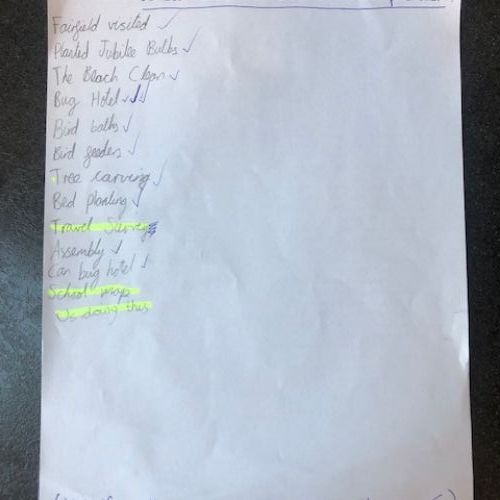 Fairfield visited ✓
Planted Jubilee Bulbs ✓
The Beach Clean ✓
Bug Hotel ✓✓✓
Bird baths ✓
Bird feeders ✓
Tree carving ✓
Bed planting ✓
Travel Survey
Assembly ✓
Can bug hotel ✓
School map
Us doing this